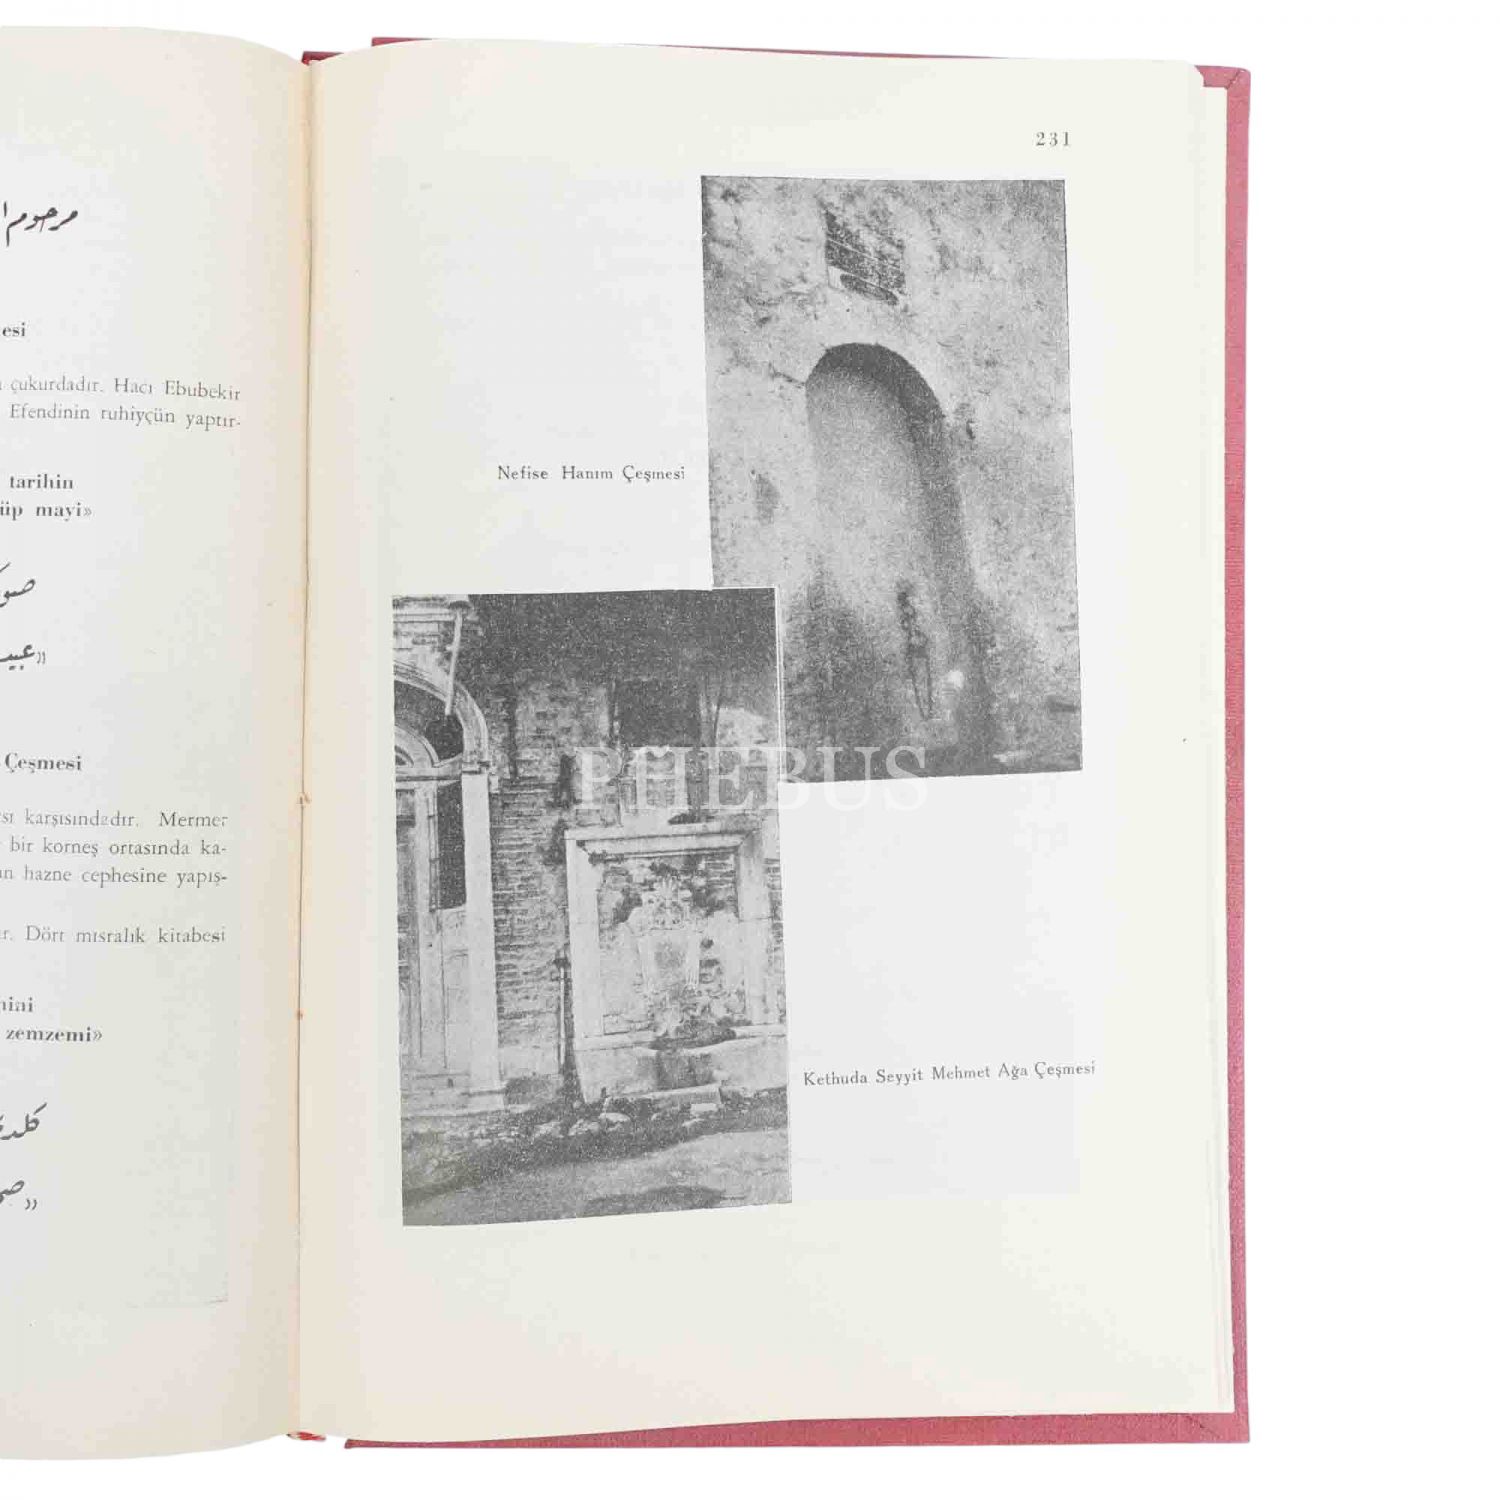 مرحوم
esi
çukurdadır. Hacı Ebubekir
Efendinin ruhiyçün yaptır-
tarihin
üp mayi»
صو
Çeşmesi
sı karşısındadır. Mermer
bir korneş ortasında ka-
ın hazne cephesine yapış-
ır. Dört mısralık kitabesi
zemzemi»
231
Nefise Hanım Çeşmesi
PHEBUS
Kethuda Seyyit Mehmet Ağa Çeşmesi